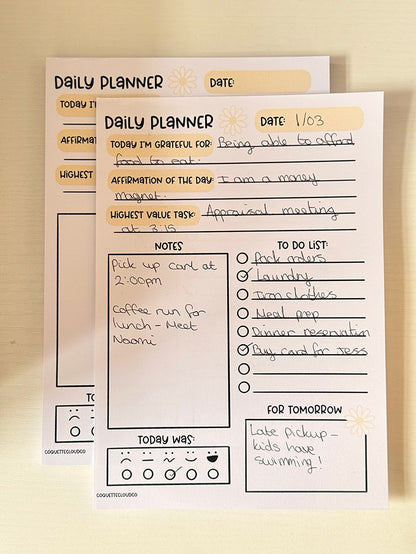 DAILY PLANNER
DATE:
TODAY I'M
AFFIRMAT
HIGHEST
TO
COQUETTECLOUDCO
DAILY PLANNER
DATE: 1/03
TODAY I'M GRATEFUL FOR: Being able to afford
food to eat.
AFFIRMATION OF THE DAY: I am a money
magnet.
HIGHEST VALUE TASK: Appraisal meeting
at 3:15
NOTES
Pick up card at
2:00pm
Coffee run for
lunch - Meet
Naomi
TO DO LIST:
Pack orders
Laundry
Iron clothes
Meal prep
Dinner reservation
Buy card for Jess
TODAY WAS:
FOR TOMORROW
Late pickup -
kids have
swimming!
COQUETTECLOUDCO